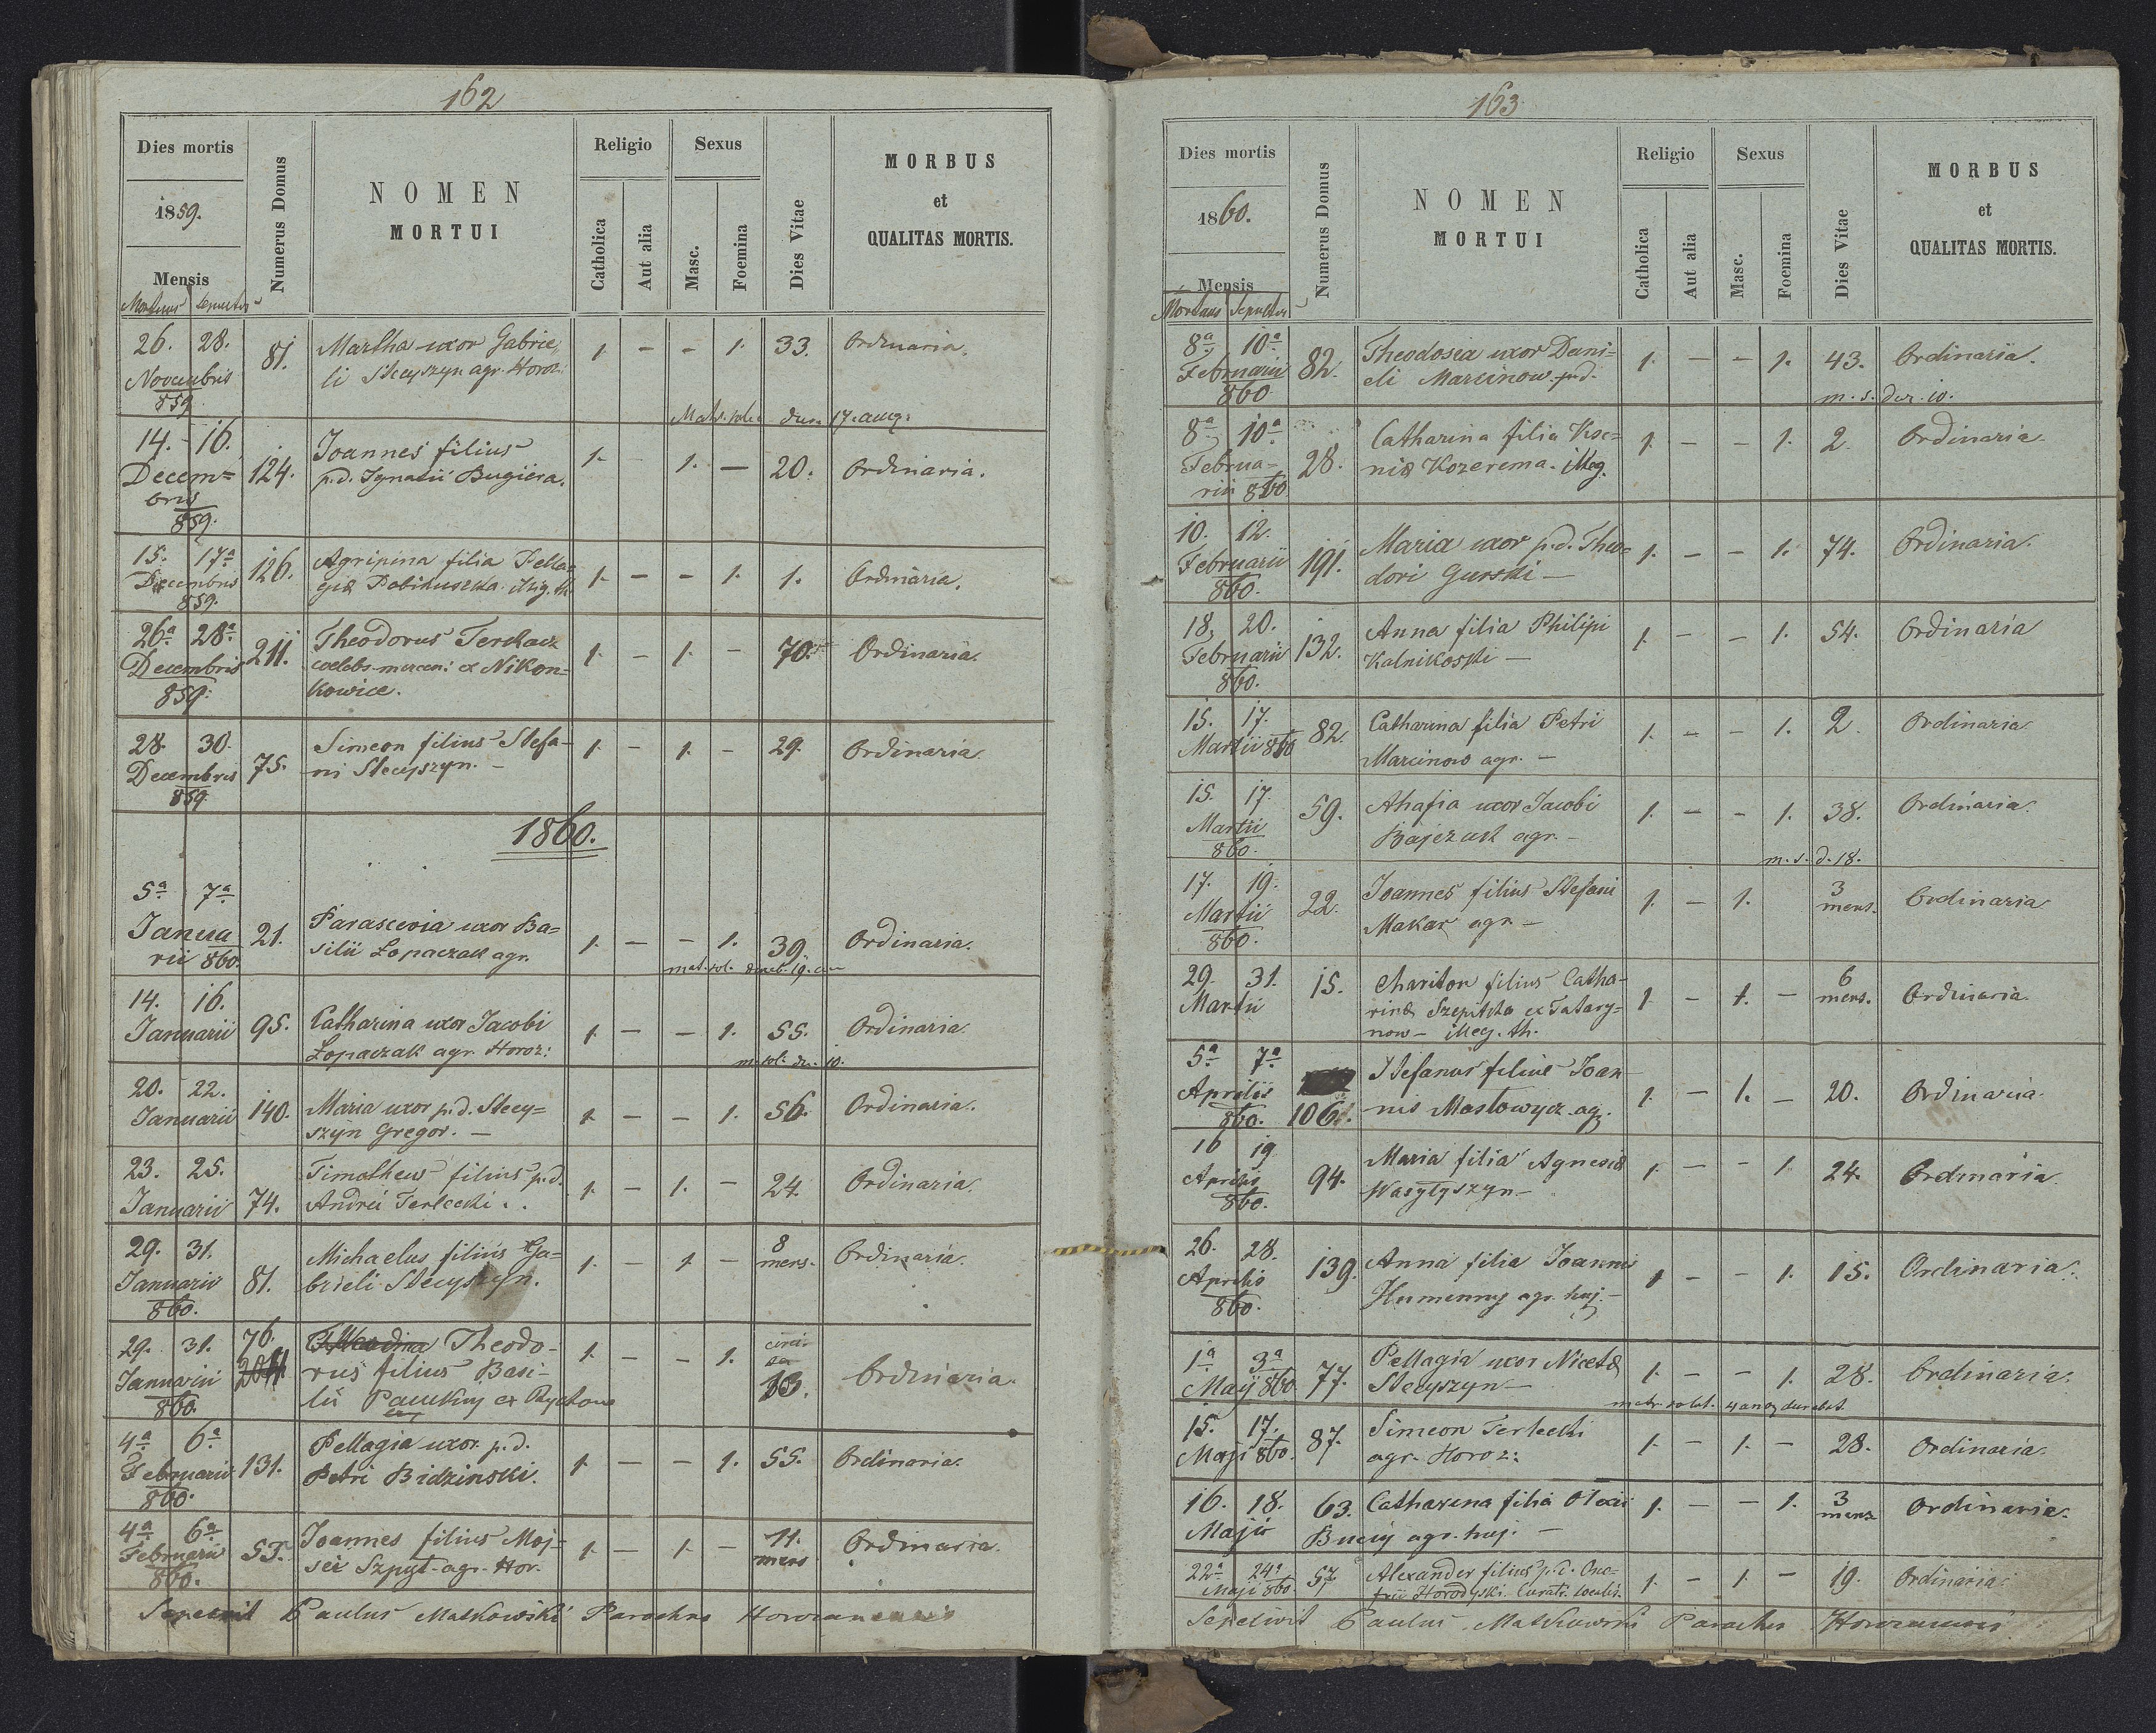 162
Dies mortis
1859.
Mensis
Mortuus Sepultus
Numerus Domus
NOMEN
MORTUI
Religio
Catholica
Aut alia
Sexus
Masc.
Foemina
Dies Vitae
MORBUS
et
QUALITAS MORTIS.
26. 28. Novembris 859 81. Martha uxor Gabrie- 1. - - 1. 33. Ordinaria.
li Stecyszyn agr. Horoz:
17. aug:
14. - 16. Decem= bris 859. 124. Joannes filius 1. - 1. - 20. Ordinaria.
p.d. Ignatii Bugiera.
15. 17a Decembris 859. 126. Agripina filia Pella- 1. - - 1. 1. Ordinaria.
26a 28a Decembris 859. 211. Theodorus Terchacz 1. - 1. - 70. Ordinaria.
coelebs ex Nikon=
kowice.
28. 30. Decembris 859. 75. Simeon filius Stefa- 1. - 1. - 29. Ordinaria.
ni Stecyszyn. -
1860.
5a 7a Janua rii 860. 21. Parascevia uxor Ba= 1. - - 1. 39. Ordinaria.
silii Łopaczak agr.
14. 16. Januarii 95. Catharina uxor Jacobi 1. - - 1. 55. Ordinaria.
Łopaczak agr. Horoz:
20. 22. Januarii 140. Maria uxor p.d. Stecy= 1. - - 1. 56. Ordinaria.
szyn Gregor. -
23. 25. Januarii 74. Timotheus filius p.d. 1. - 1. - 24. Ordinaria.
Andrii Terlecki.
29. 31. Januarii 860. 81. Michaelus filius Ga= 1. - 1. - 8 mens. Ordinaria.
brieli Stecyszyn.
29. 31. Januarii 860. 76. Theodo- 1. - - 1. 13. Ordinaria.
rus filius Basi-
lii
4a 6a Februarii 860. 131. Pellagia uxor p.d. 1. - - 1. 55. Ordinaria.
Petri Bidzinski.
4a 6a Februarii 860. 55. Joannes filius Moj- 1. - 1. - 11. mens Ordinaria.
sei Szpyt agr. Hor.
Sepelivit Paulus Matkowski Parochus Horozanensis
163
Dies mortis
1860.
Mensis
Mortuus Sepultus
Numerus Domus
NOMEN
MORTUI
Religio
Catholica
Aut alia
Sexus
Masc.
Foemina
Dies Vitae
MORBUS
et
QUALITAS MORTIS.
8a 10a Februarii 860 82. Theodosia uxor Dani= 1. - - 1. 43. Ordinaria.
eli Marcinow p.d.
m. s. dur. 10.
8a 10a Februa= rii 860 28. Catharina filia Kse= 1. - - 1. 2. Ordinaria.
nia Kozerema. illeg.
10. 12. Februarii 860. 191. Maria uxor p.d. Theo= 1. - - 1. 74. Ordinaria.
dori Gurski -
18. 20. Februarii 860. 132. Anna filia Philipi 1. - - 1. 54. Ordinaria
Kalnikoski -
15. 17. Martii 860 82. Catharina filia Petri 1. - - 1. 2. Ordinaria.
Marcinow agr. -
15. 17. Martii 860. 59. Ahafia uxor Jacobi 1. - - 1. 38. Ordinaria.
Bajczak agr. -
m. s. d. 18.
17. 19. Martii 860. 22. Joannes filius Stefani 1. - 1. 3 mens. Ordinaria
Makar agr. -
29. 31. Martii 15. Chariton filius Catha- 1. - 1. - 6 mens. Ordinaria.
rina Szepitka ex Tatary=
now - illeg. th.
5a 7a Aprilis 860. 106. Stefanus filius Joan- 1. - 1. - 20. Ordinaria.
nis Masłowycz ag.
16 19 Aprilis 860. 94. Maria filia Agnesia 1. - - 1. 24. Ordinaria.
Wasylyszyn -
26. 28. Aprilis 860. 139. Anna filia Joanni 1. - - 1. 15. Ordinaria.
Humenny agr. huj. -
1a 3a Maji 860 77. Pellagia uxor Niceta 1. - - 1. 28. Ordinaria.
Stecyszyn -
15. 17. Maji 860. 87. Simeon Terlecki 1. - 1. - 28. Ordinaria.
agr. Horoz:
16. 18. Maji 63. Catharina filia Olexii 1. - - 1. 3 mens Ordinaria.
Buciy agr. huj. -
22a 24a Maji 860. 57 Alexander filius p.d. Ono- 1. - 1. - 19. Ordinaria.
frii Horodyski. Curat. localis.
Sepelivit Paulus Matkowski Parochus Horozanensis